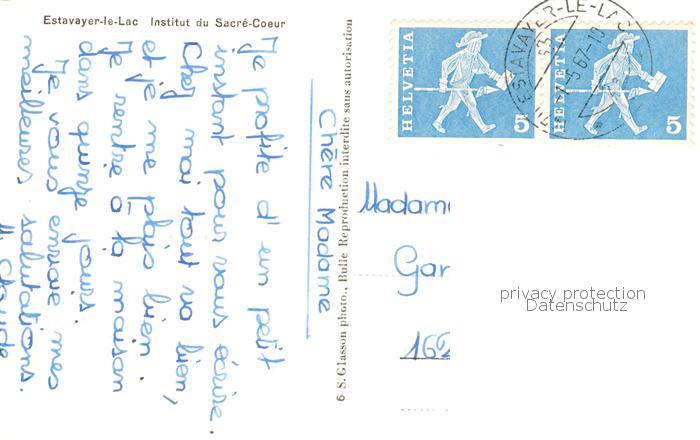 Estavayer-le-Lac Institut du Sacré-Coeur
Chère Madame
Je profite d'un petit
instant pour vous écrire.
Chez moi tout va bien,
et je me plais bien.
Je rentre à la maison
dans quinze jours.
Je vous envoie mes
meilleures salutations.
6 S. Glasson photo., Bulle Reproduction interdite sans autorisation
HELVETIA 5
HELVETIA 5
ESTAVAYER-LE-LAC
Madame
Gar
162
privacy protection
Datenschutz